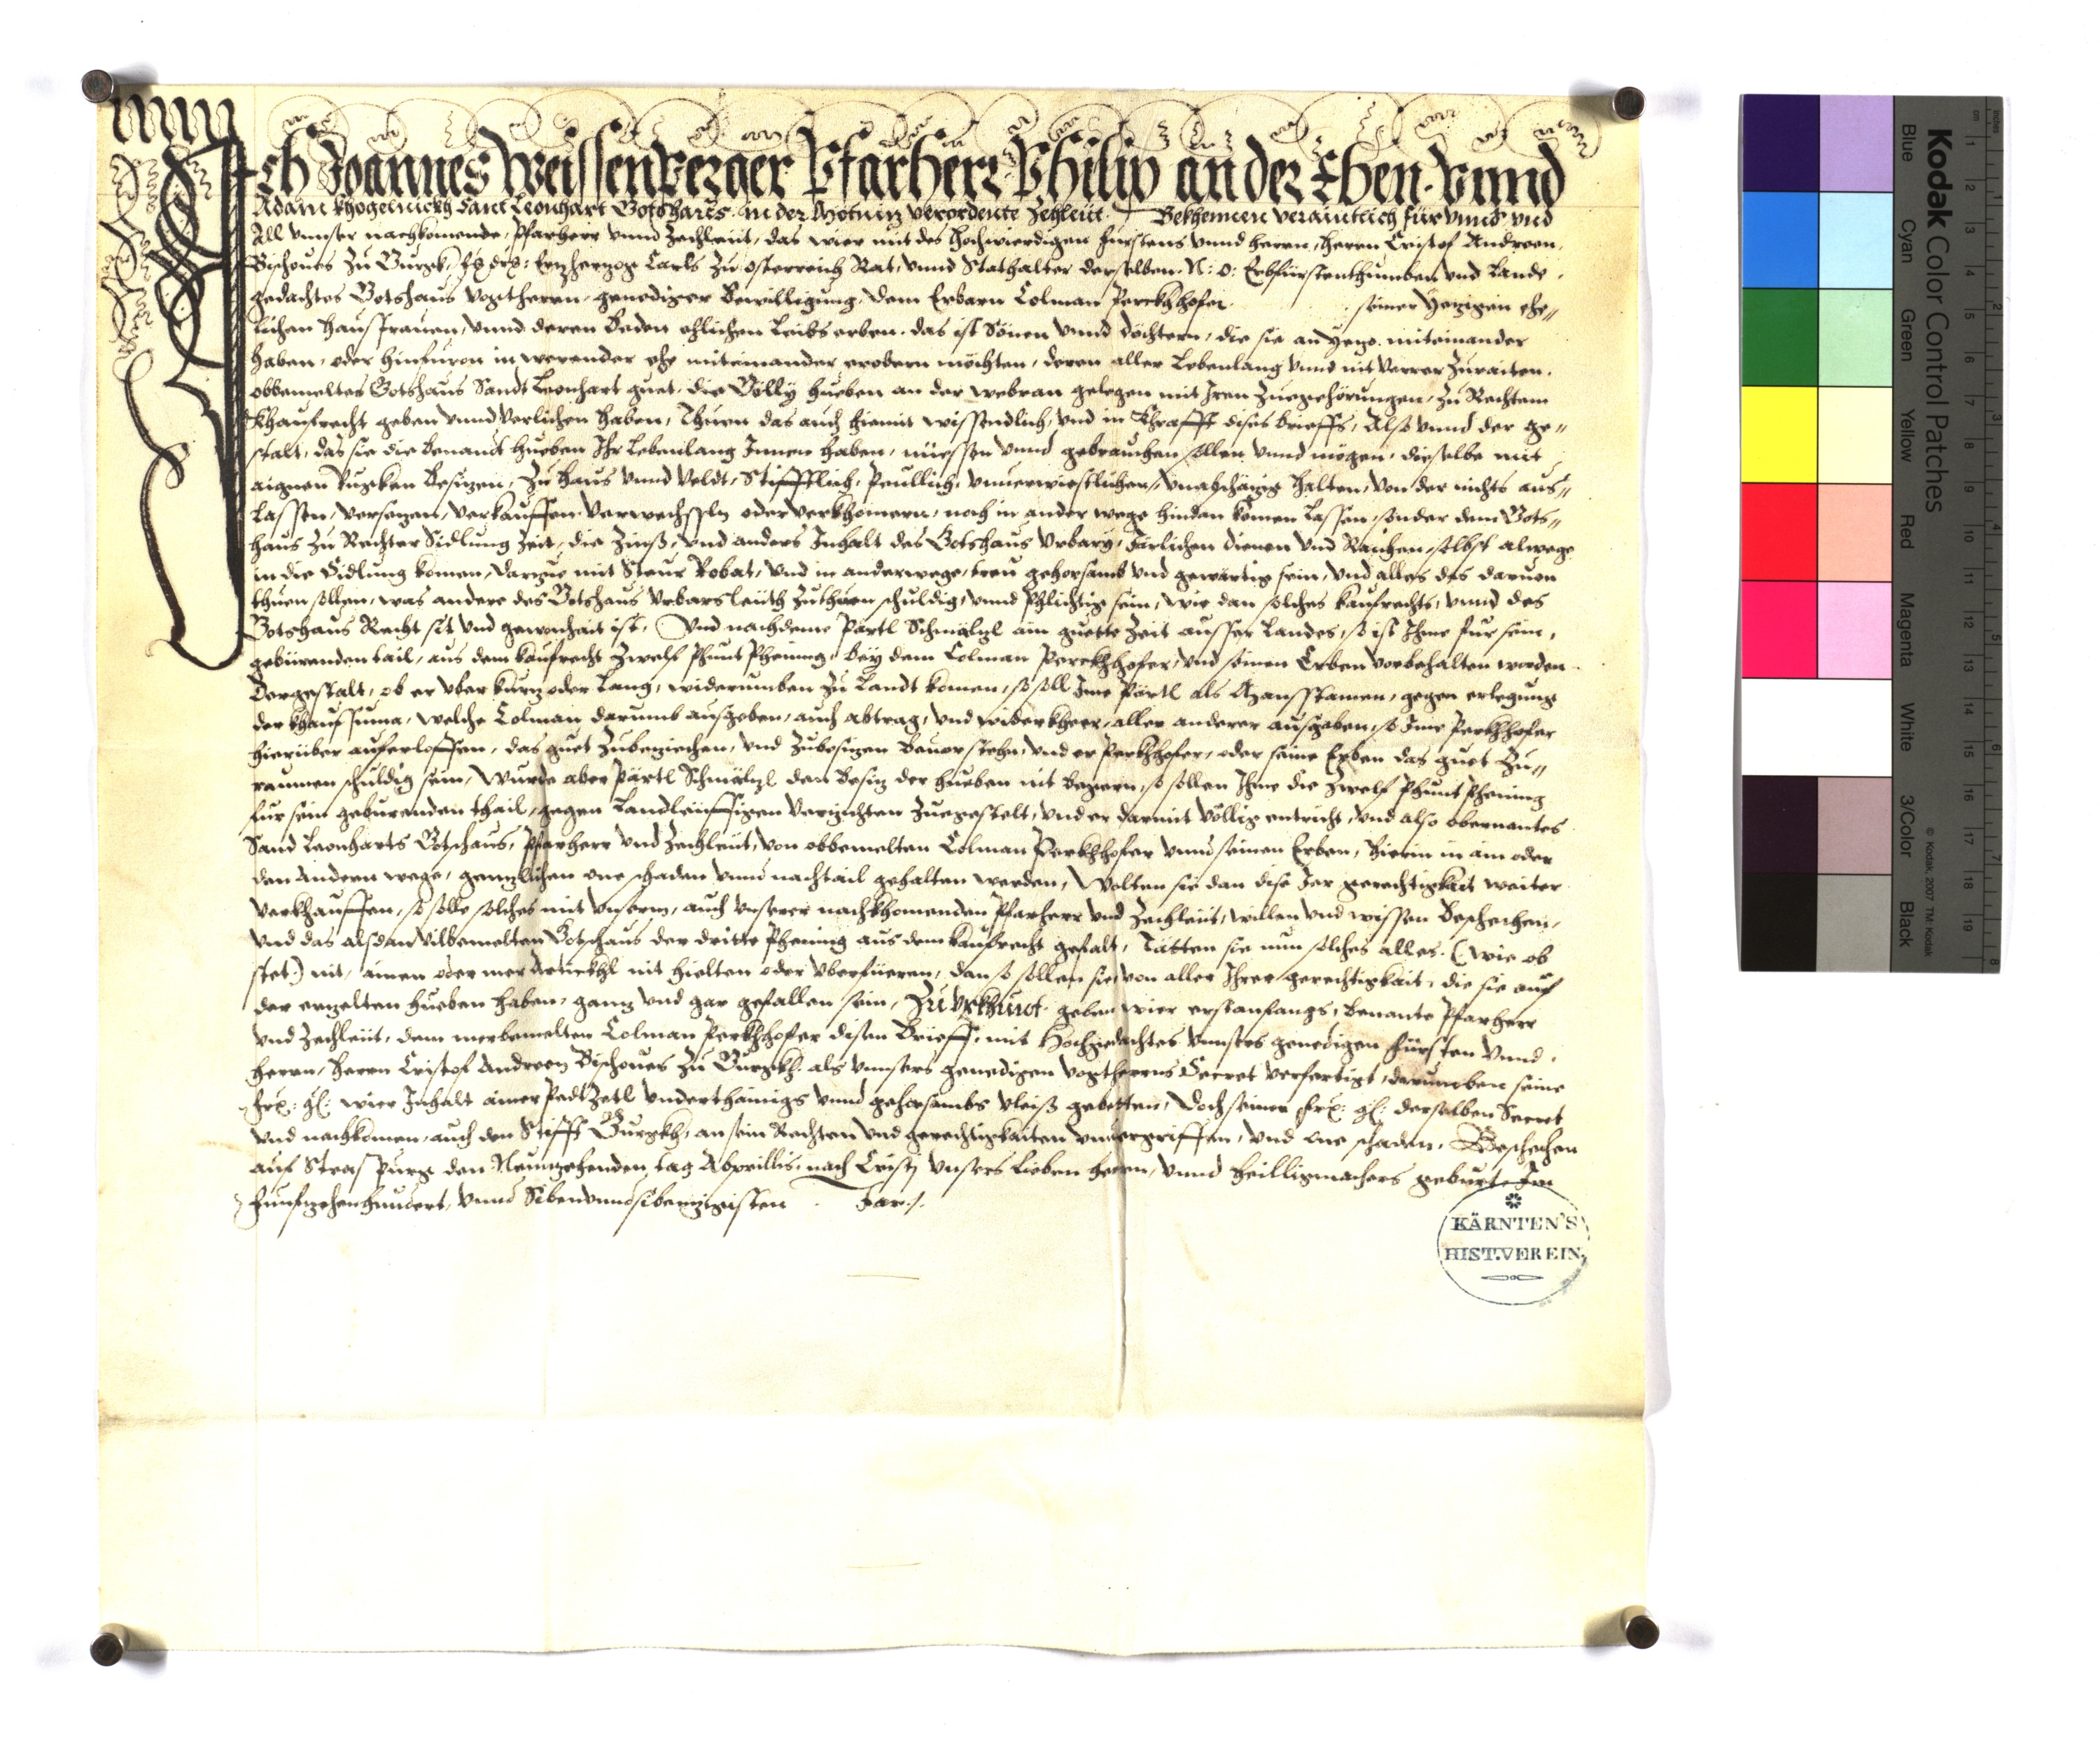 Ich Joannes Weissenperger Pfarherr Philip an der Eben vnnd
Adam Khogelnickh Sanct Leonhart Gotshaus in der Motniz verordente Zechleüt Bekhennen verainttlich für vnns vnd
All vnnser nachkomende Pfarherr vnnd Zechleüt, das wier mit des Hochwierdigen Fürstens vnnd herrn, herrn Cristof Andreen
Bischoues zu Gurgk, Erzherzoge Carls zu osterreich Rat, vnnd Stathalter derselben N: O: Erbfürstenthumben vnd Lande
gedachtes Gotshaus vogtherrn, genediger Bewilligung, dem Erbarn Colman Perckhhofer seiner Yezigen ehe„
lichen hausfrauen, vnnd deren Beden ehlichen Leibs erben, das ist Sönen vnnd döchtern, die sie an Yezo miteinander
haben, oder hinfüron in werender ehe miteinander erobern möchten, deren aller Lebenlang vnnd nit verrer zuraiten
obbemeltes Gotshaus Sandt Leonhart guet die Völly hueben an der webran gelegen mit Iren zuegehörungen, zu Rechtem
Khaufrecht geben vnnd verlichen haben, Thuen das auch hiemit wissendlich, vnd in Khrafft dises brieffs, Also vnnd der ge„
stalt, das sie die benandt hueben Ihr Lebenlang Innen haben, nüessen vnnd gebrauchen sollen vnnd mögen, dieselbe mit
aignen Rugken Besizen, zu haus vnnd Veldt, Stifftlich, Peullich, vnuerwiestlichen, halten, von der nichts aus„
lassen, versezen, verkauffen verwechssln oder verkhomern, noch in ander wege hindan komen lassen, sonder dem Gots„
haus zu Rechter Sidlung Zeit, die Zinß, vnd anders Inhalt des Gotshaus Vrbary, Järlichen dienen vnd Raichen, selbst alwege
in die Sidlung komen, darzue mit Steur Robat, vnd in anderwege, treu gehorsamb vnd gewärtig sein, vnd alles das daruon
thuen sollen, was andere des Gotshaus Vrbarsleüth zuthuen schuldig, vnnd phlichtig sein, wie dan solches kaufrechts, vnnd des
Gotshaus Recht sit vnd gewonhait ist, Vnd nachdeme Pärtl Schmälzl ain guette Zeit ausser Landes, so ist Ihme fur sein,
gebürenden tail, aus dem kaufrecht Zwelf Phunt Phening, bey dem Colman Perckhhofer, vnd seinen Erben vorbehalten worden
Dergestalt, ob er vber kurz oder lang, widerumben zu Landt komen, so soll Ime Pärtl als, gegen erlegung
der khaufsuma, welche Colman darumb ausgeben, auch abtrag, vnd widerkherr, aller anderer ausgaben, so Ime Perkhhofer
hierüber auferloffen, das guet zubeziechen, vnd zubesizen Beuor stehn, vnd er Perkhhofer, oder seine Erben das guet zu„
raumen schuldig sein, Wurde aber Pärtl Schmälzl den Besiz der hueben nit begern, so sollen Ihme die Zwelf Phunt Phening
fur sein geburenden thail, gegen Landleüffigen verzichten zuegestelt, vnd er darmit völlig entricht, vnd also obernantes
Sand Leonharts Gotshaus, Pfarherr vnd Zechleüt, von obbemelten Colman Perkhhofer vnnd seinen Erben, hierin in ain oder
den andern wege, gennzlichen one schaden vnnd nachtail gehalten werden, Wolten sie dan dise Ier gerechtigkait weiter
Verkhauffen, so solle solches mit vnserm, auch vnserer nachkhomenden Pfarherr vnd Zechleüt, willen vnd wissen Beschechen,
vnd das alsdan vilbemelten Gotshaus der dritte Phening aus dem kaufrecht gefalt, Tätten sie nun solches alles (: wie ob
stet:) nit, ainen oder mer Artickhl nit hielten oder vberfüeren, dan so sollen sie, von aller Ihrer gerechtigkait, die sie auf
der erzelten hueben haben, ganz vnd gar gefallen sein, Zu Vrkhunt geben wier erstanfangs, benante Pfarherr
vnd Zechleüt, dem merbemelten Colman Perkhhofer disen Brieff, mit Hochgedachtes vnnsers genedigen Fürsten vnnd
herrn, herrn Cristof Andreen Bischoues zu Gurgkh als vnnsers genedigen vogtherrns Secret verfertigt, darumben seine
wier Inhalt ainer Pedt Zetl vnderthänigs vnnd gehorsambs vleiß gebetten, doch seiner derselben Secret
vnd nachkomen, auch den Stifft Gurgkh, an sein Rechten vnd gerechtigkaiten vnuergriffen, vnd one schaden. Beschehen
auf Straspurg den Neunzehenden tag Abprillis, nach Cristi vnsers lieben herrn, vnnd heilligmachers geburt, Im
funfzehenhundert, vnnd Sibenvnndsibenzigisten Jar ./.
KÄRNTEN'S
HIST. VEREIN
Kodak Color Control Patches
Blue Cyan Green Yellow Red Magenta White 3/Color Black
© Kodak, 2007 TM: Kodak